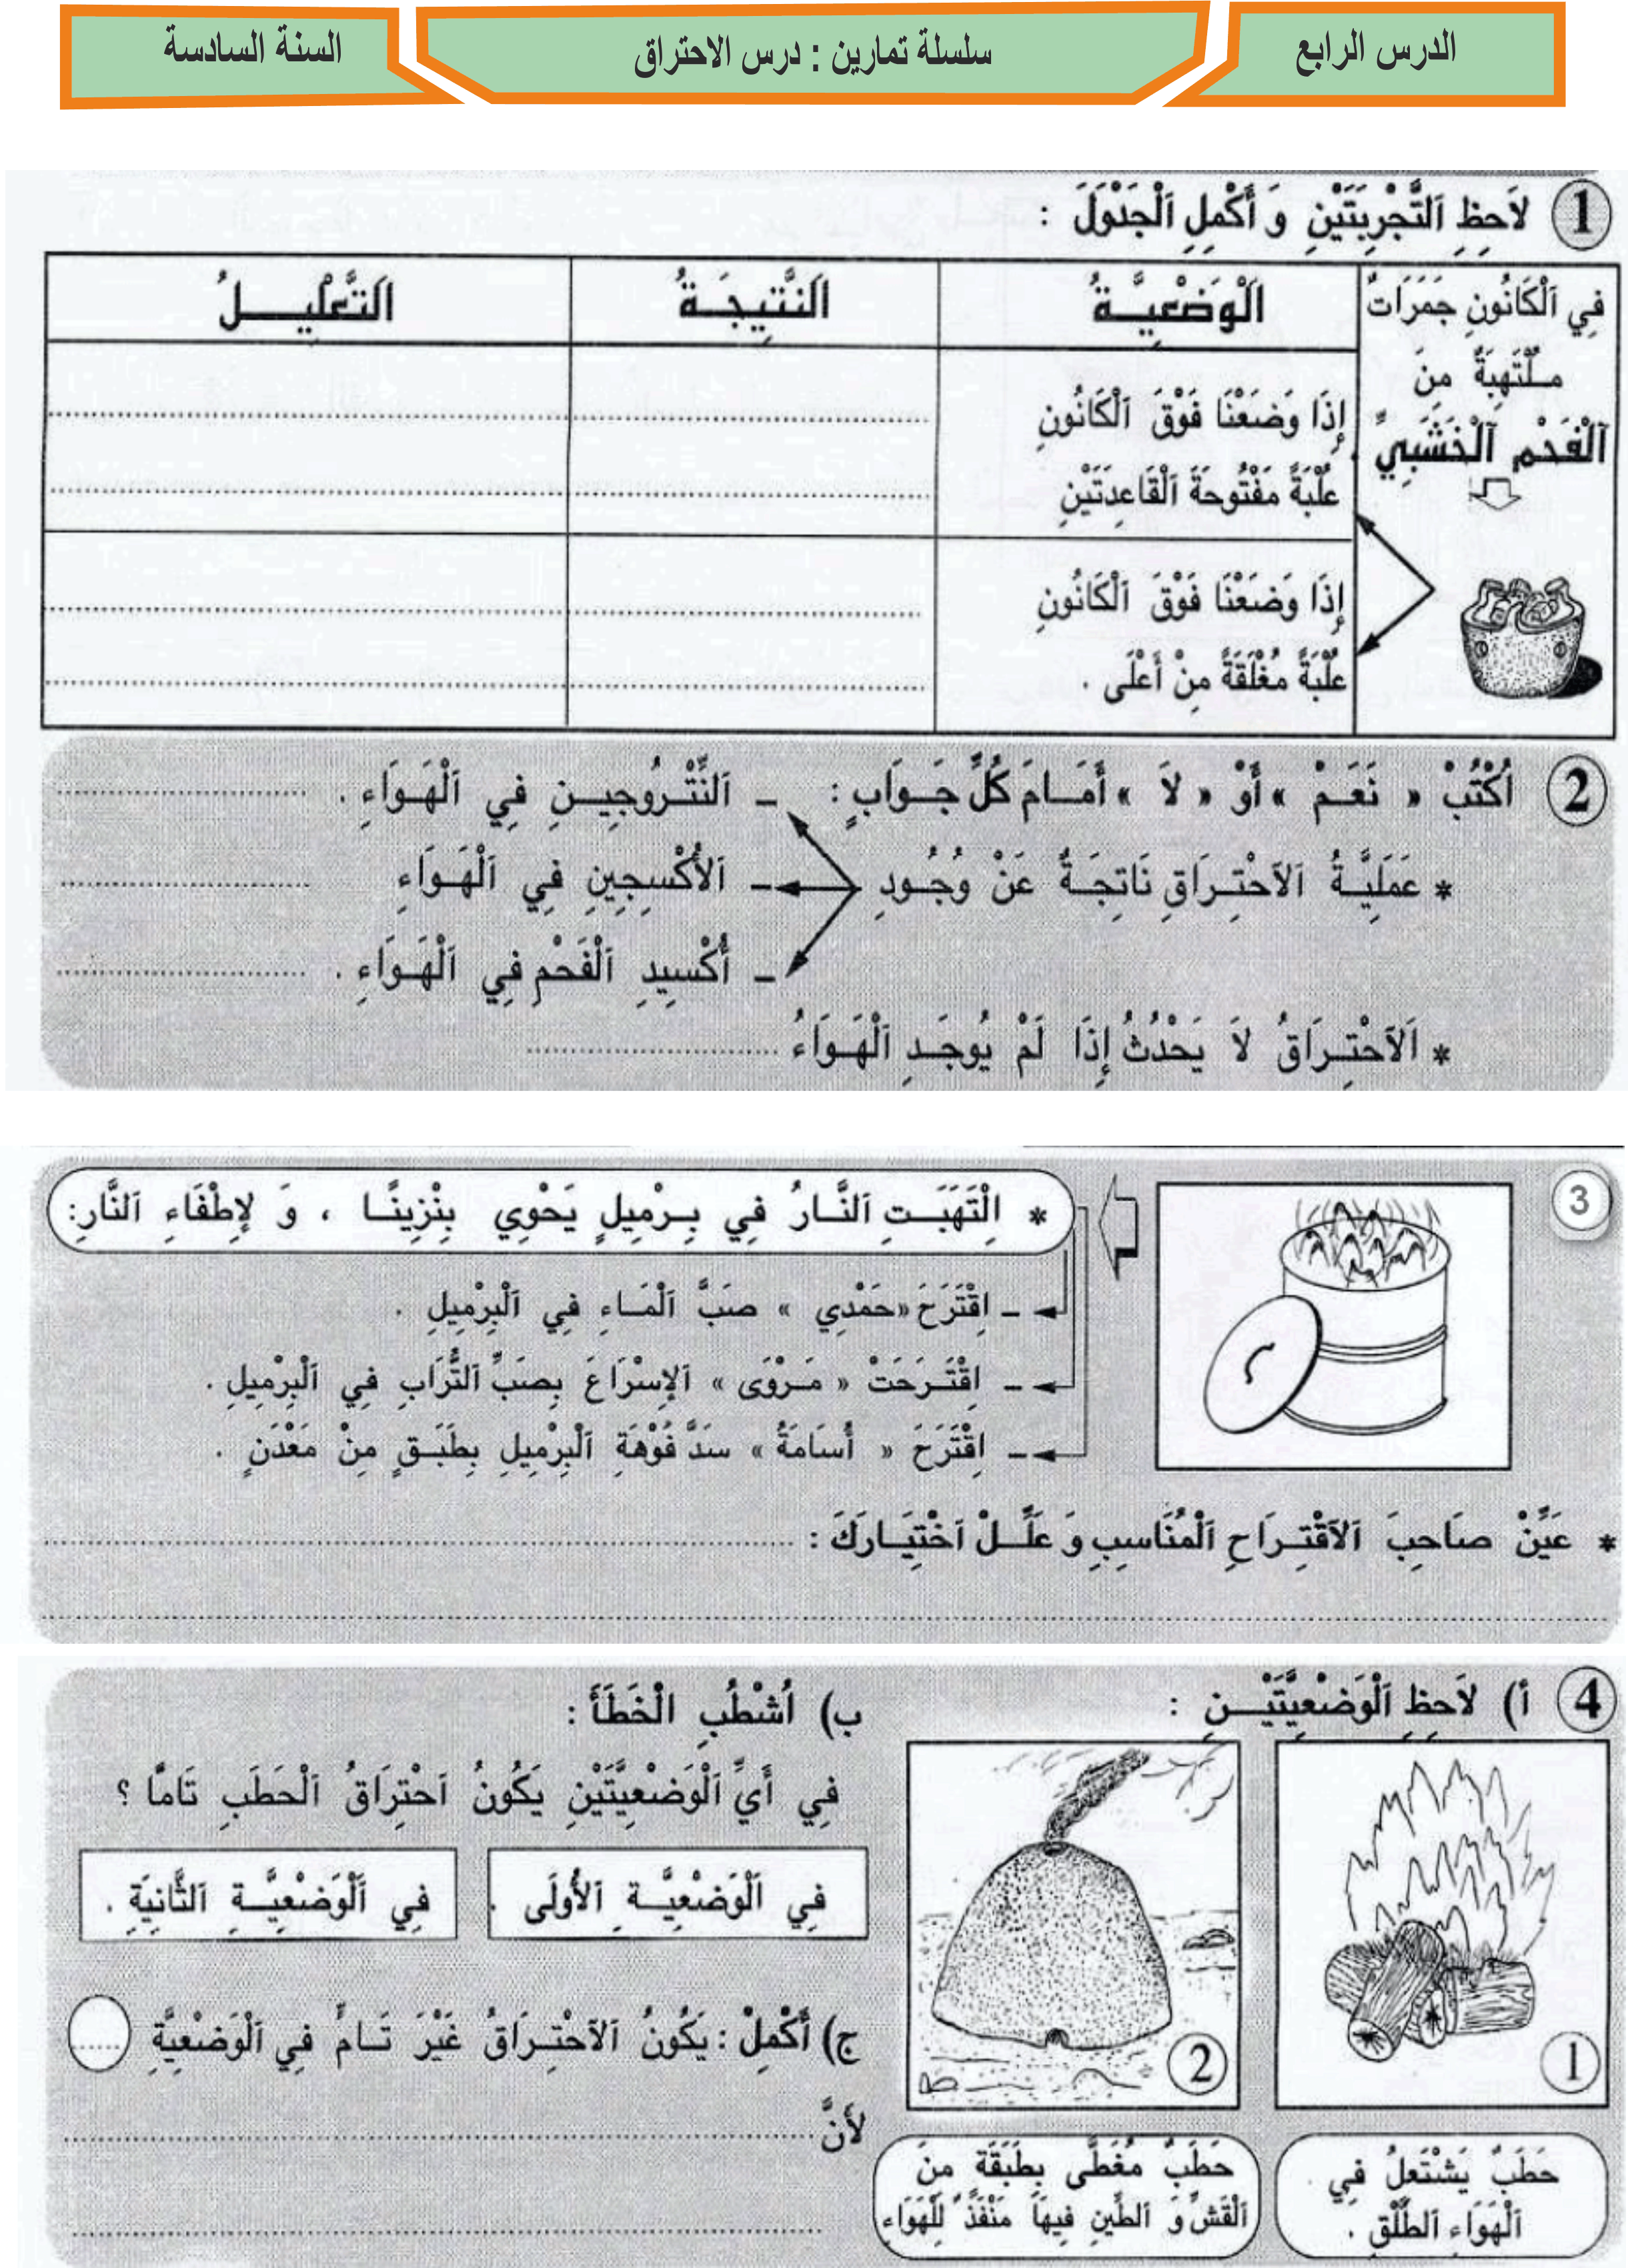 الدرس الرابع
سلسلة تمارين : درس الاحتراق
السنة السادسة
1 لاَحِظِ اَلتَّجْرِبَتَيْنِ وَ أَكْمِلِ اَلْجَدْوَلَ :
فِي اَلْكَانُونِ جَمَرَاتٌ
مُلْتَهِبَةٌ مِنَ
اَلْفَحْمِ اَلْخَشَبِيِّ
اَلْوَضْعِيَّةُ
اَلنَّتِيجَةُ
اَلتَّعْلِيلُ
إِذَا وَضَعْنَا فَوْقَ اَلْكَانُونِ
عُلْبَةً مَفْتُوحَةَ اَلْقَاعِدَتَيْنِ
إِذَا وَضَعْنَا فَوْقَ اَلْكَانُونِ
عُلْبَةً مُغْلَقَةً مِنْ أَعْلَى .
2 اُكْتُبْ « نَعَمْ » أَوْ « لاَ » أَمَامَ كُلِّ جَوَابٍ :
* عَمَلِيَّةُ اَلاَحْتِرَاقِ نَاتِجَةٌ عَنْ وُجُودِ
ـ اَلنِّتْرُوجِينِ فِي اَلْهَوَاءِ . ..............
ـ اَلأُكْسِجِينِ فِي اَلْهَوَاءِ ..............
ـ أُكْسِيدِ اَلْفَحْمِ فِي اَلْهَوَاءِ . ..............
* اَلاَحْتِرَاقُ لاَ يَحْدُثُ إِذَا لَمْ يُوجَدِ اَلْهَوَاءُ ..............
3
* اِلْتَهَبَتِ اَلنَّارُ فِي بِرْمِيلٍ يَحْوِي بِنْزِينًا ، وَ لإِطْفَاءِ اَلنَّارِ:
ـ اِقْتَرَحَ «حَمْدِي » صَبَّ اَلْمَاءِ فِي اَلْبِرْمِيلِ .
ـ اِقْتَرَحَتْ « مَرْوَى » اَلإِسْرَاعَ بِصَبِّ اَلتُّرَابِ فِي اَلْبِرْمِيلِ .
ـ اِقْتَرَحَ « أُسَامَةُ » سَدَّ فُوْهَةِ اَلْبِرْمِيلِ بِطَبَقٍ مِنْ مَعْدَنٍ .
* عَيِّنْ صَاحِبَ اَلاَقْتِرَاحِ اَلْمُنَاسِبِ وَ عَلِّلْ اَخْتِيَارَكَ : ..............
4 أ) لاَحِظِ اَلْوَضْعِيَّتَيْنِ :
1
حَطَبٌ يَشْتَعِلُ فِي
اَلْهَوَاءِ اَلطَّلْقِ .
2
حَطَبٌ مُغَطَّى بِطَبَقَةٍ مِنَ
اَلْقَشِّ وَ اَلطِّينِ فِيهَا مَنْفَذٌ لِلْهَوَاءِ
ب) اُشْطُبِ الْخَطَأَ :
فِي أَيِّ اَلْوَضْعِيَّتَيْنِ يَكُونُ اَحْتِرَاقُ اَلْحَطَبِ تَامًّا ؟
فِي اَلْوَضْعِيَّةِ اَلأُولَى .
فِي اَلْوَضْعِيَّةِ اَلثَّانِيَةِ .
ج) أَكْمِلْ : يَكُونُ اَلاَحْتِرَاقُ غَيْرَ تَامٍّ فِي اَلْوَضْعِيَّةِ .....
لأَنَّ ..............